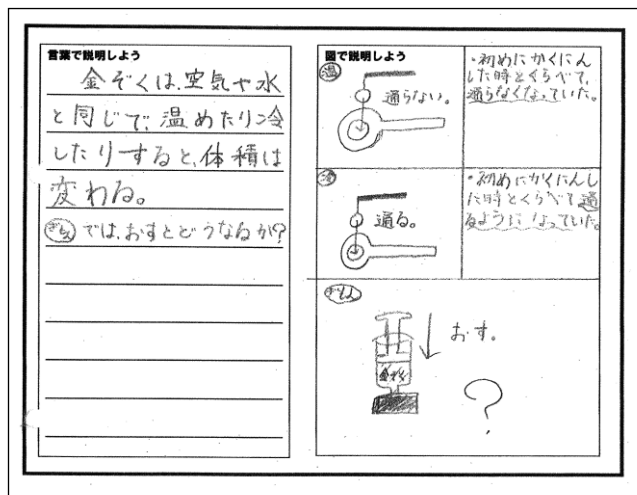 言葉で説明しよう
金ぞくは、空気や水
と同じで、温めたり冷
したりすると、体積は
変わる。
ぎもん では、おすとどうなるか?
図で説明しよう
温
通らない。
・初めにかくにん
した時とくらべて、
通らなくなっていた。
冷
通る。
・初めにかくにんし
た時とくらべて通
るようになっていた。
ぎもん
おす。
金ぞく
?